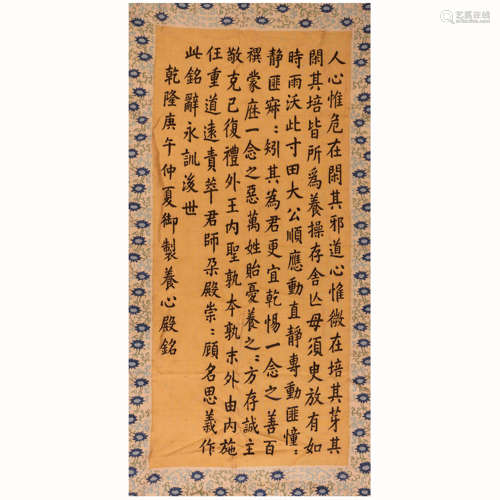 艺狐在线
人心惟危在閑其邪道心惟微在培其芽其
閑其培皆所為養操存舍亾毋須臾放有如
時雨沃此寸田大公順應動直靜專動匪憧：
靜匪寐：矧其為君更宜乾惕一念之善百
禩蒙庥一念之惡萬姓貽憂養之：方存誠主
敬克己復禮外王内聖孰本孰末外由内施
任重道遠責萃君師朶殿崇：顧名思義作
此銘辭永訓後世
乾隆庚午仲夏御製養心殿銘